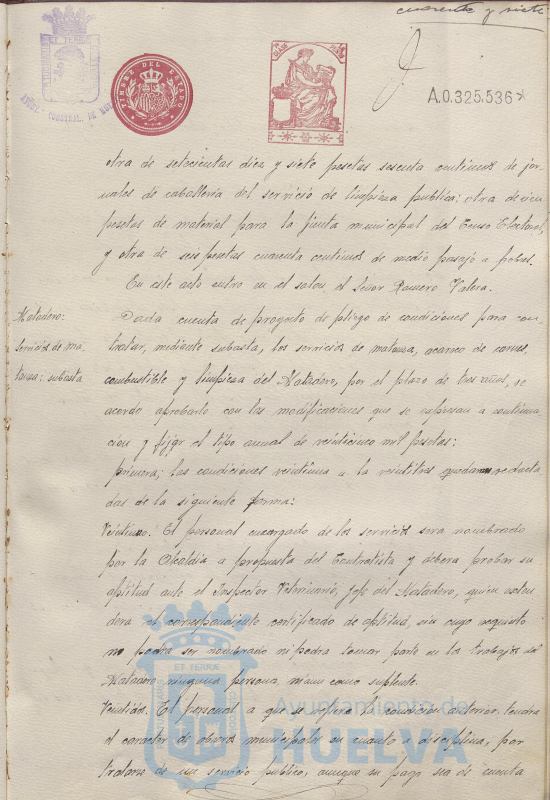 cuarenta y siete
TIMBRE DEL ESTADO
CLASE
A.0.325.536*
otra de setecientas diez y siete pesetas sesenta centimos de jor-
nales de caballeria del servicio de limpieza publica; otra de cien
pesetas de material para la junta municipal del Censo Electoral,
y otra de seis pesetas cuarenta centimos de medio pasaje a pobres.
En este acto entro en el salon, el Señor Romero Valera.
Matadero:
servicios de ma-
tanza: subasta
Dada cuenta de proyecto de pliego de condiciones para con-
tratar, mediante subasta, los servicios de matanza, acarreo de carnes,
combustible y limpieza del Matadero, por el plazo de tres años, se
acordo aprobarlo con las modificaciones que se expresan a continua
cion y fijar el tipo anual de veinticinco mil pesetas:
primera; las condiciones veintiuna a la veintitres quedaran redacta
das de la siguiente forma:
Veintiuno. El personal encargado de los servicios sera nombrado
por la Alcaldia a propuesta del Contratista y debera probar su
aptitud ante el Inspector Veterinario, Jefe del Matadero, quien exten
dera el correspondiente certificado de aptitud, sin cuyo requisito
no podra ser nombrado ni podra tomar parte en los trabajos del
Matadero ninguna persona, ni aun como suplente.
Veintidos. El personal a que se refiere la condicion anterior, tendra
el caracter de obreros municipales en cuanto a disciplina, por
tratarse de un servicio publico, aunque su pago sea de cuenta
Ayuntamiento de
HUELVA